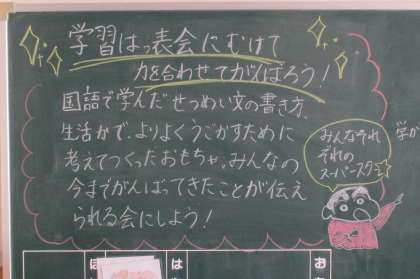 学習はっ表会にむけて
力を合わせてがんばろう!
国語で学んだせつめい文の書き方、
生活かで、よりよくうごかすために
考えてつくったおもちゃ。みんなの
今までがんばってきたことが伝え
られる会にしよう!
みんなそれ
ぞれの
スーパースター
学が
は
お